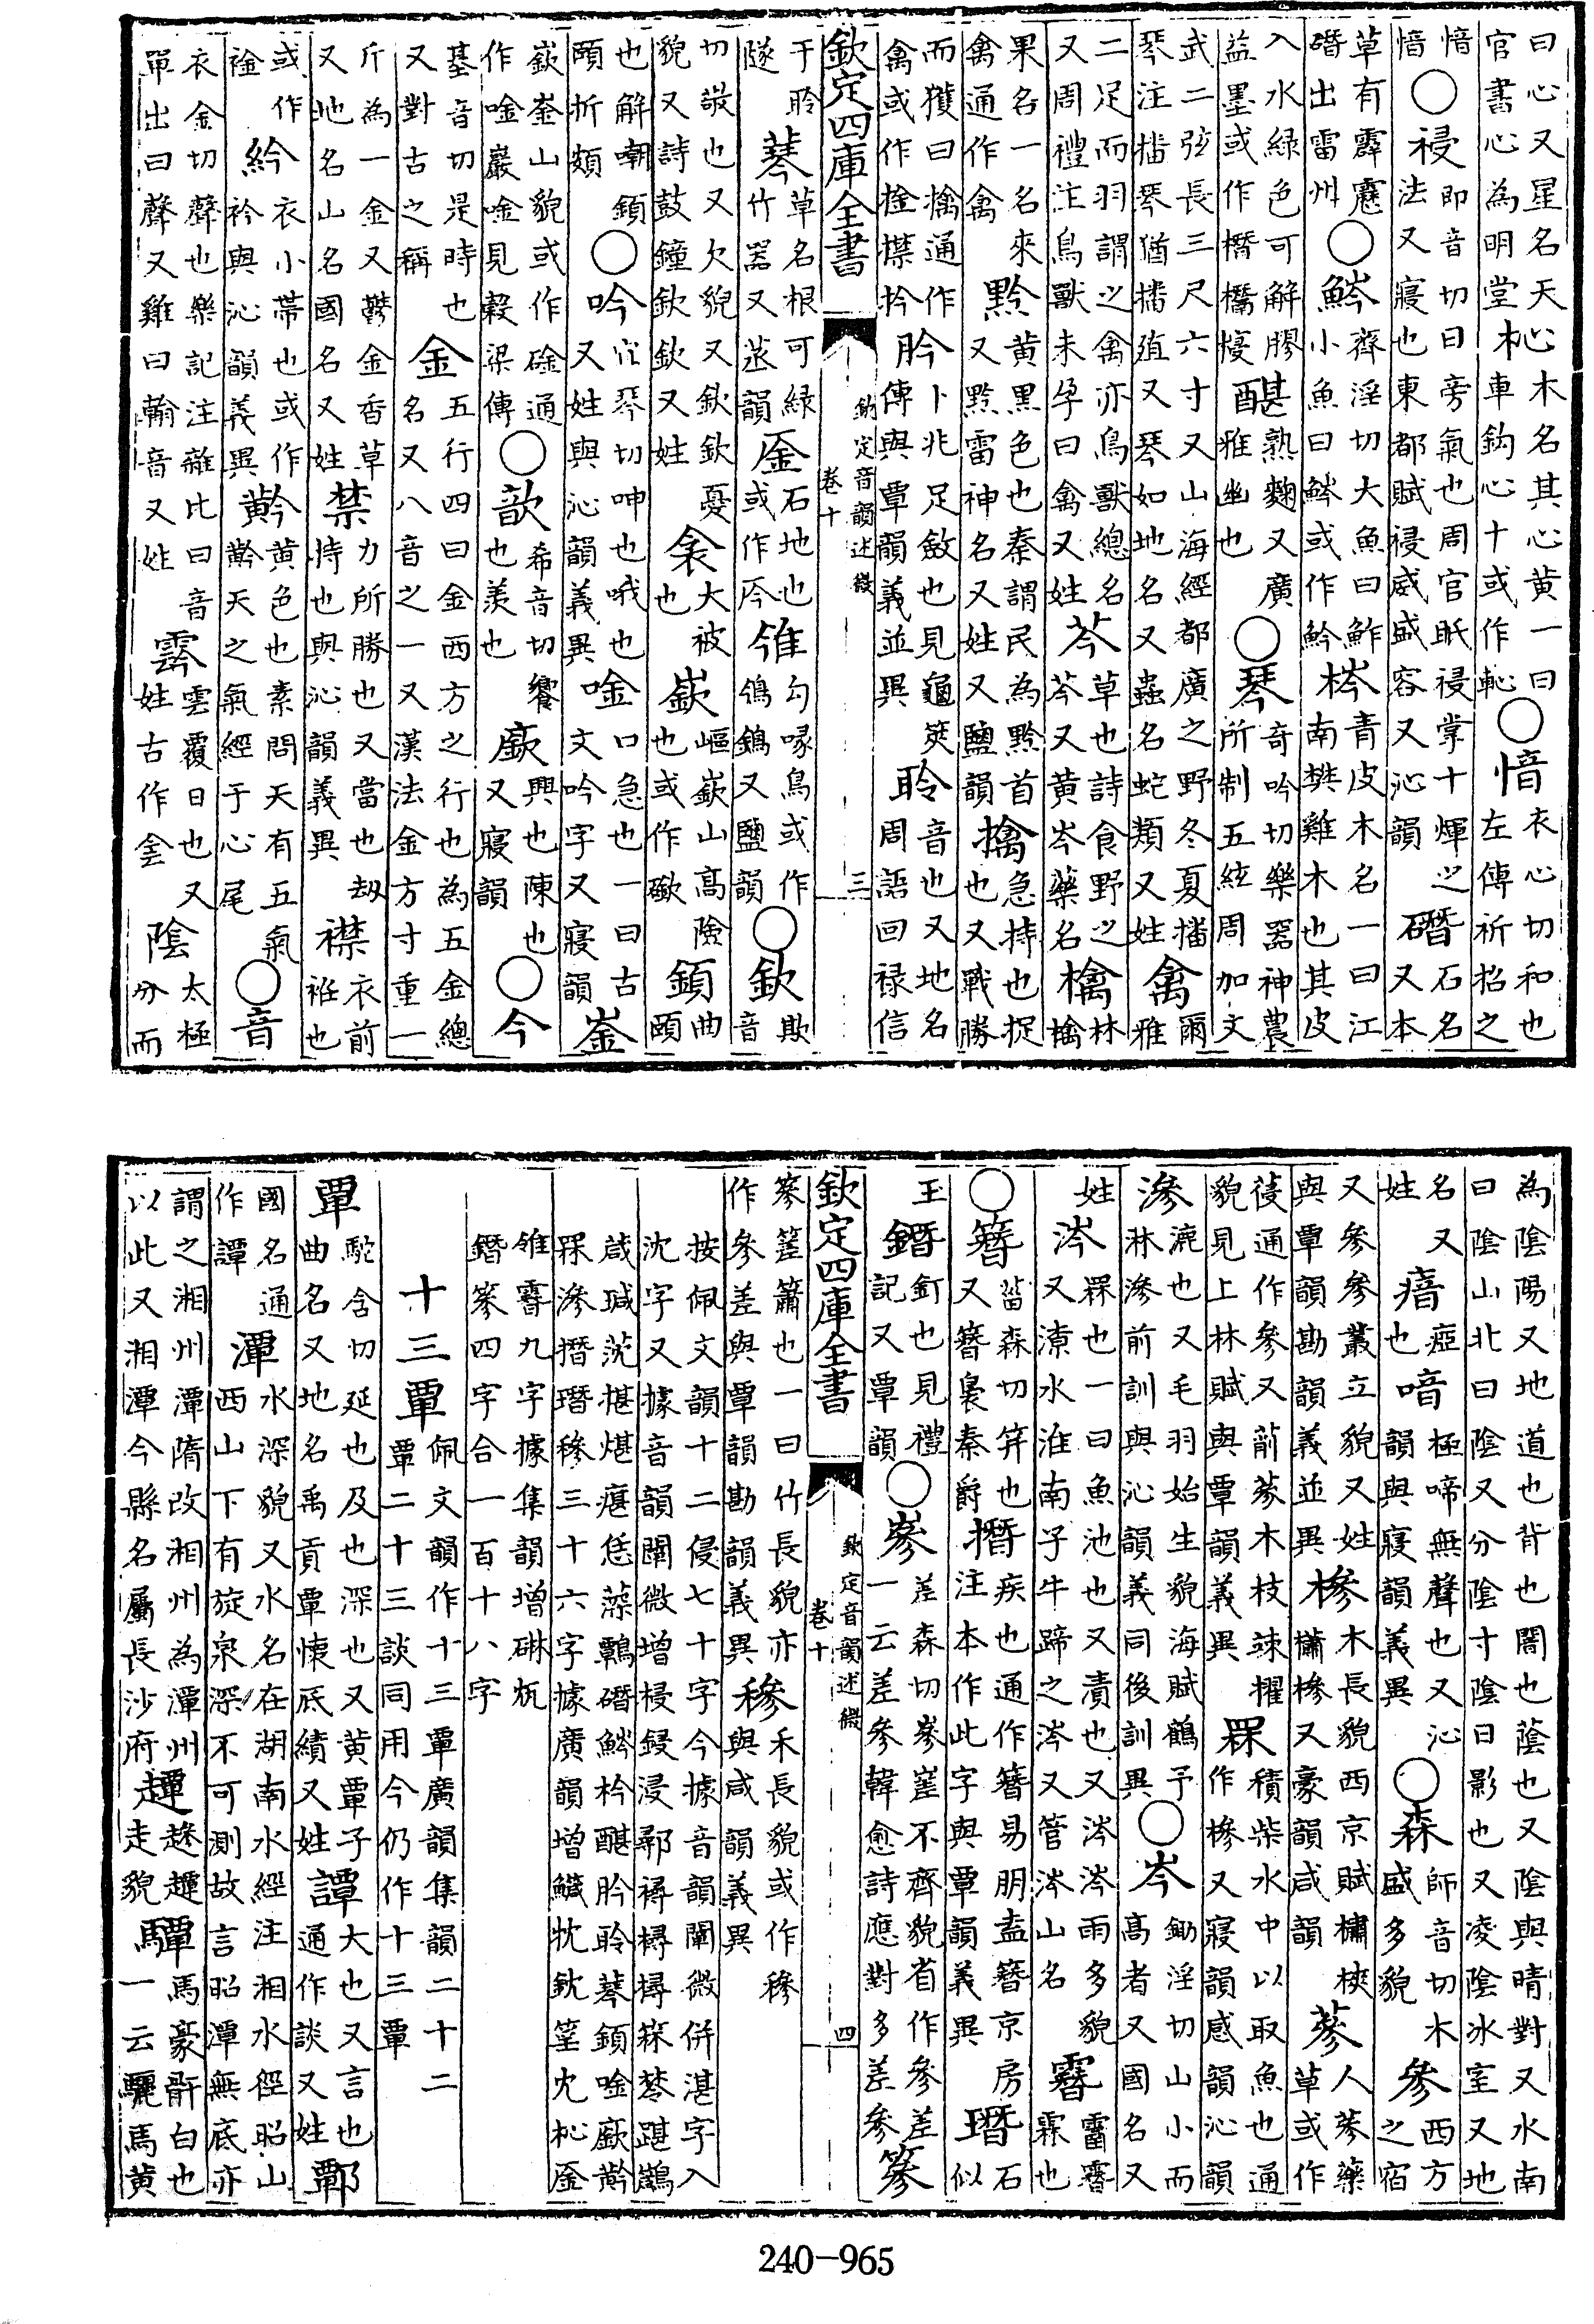 曰心又星名天官書心為明堂杺木名其心黄一曰車鈎心十或作䡈○愔衣心切和也左傳祈招之
愔愔○祲即音切日旁氣也周官眡祲掌十煇之法又寢也東都賦祲威盛容又沁韻石名又本
草有霹靂出雷州○齊淫切大魚曰鮓小魚曰或作魿梣青皮木名一曰江南樊雞木也其皮
入水綠色可解膠益墨或作熟麴也又廣雅幽也○琴奇吟切樂器神農所制五絃周加文
武二弦長三尺六寸又山海經都廣之野冬夏播琴注播琴猶播殖又琴如地名又蟲名蛇類又姓禽爾雅
二足而羽謂之禽亦鳥獸總名又周禮注鳥獸未孕曰禽又姓芩草也詩食野之芩又黄岑藥名檎林檎
果名一名來禽通作禽黔黄黑色也秦謂民為黔首又黔雷神名又姓又鹽韻擒急持也捉也又戰勝
而獲曰擒通作禽或作捦㩒扲肣卜兆足斂也見龜筴傳與覃韻義並異聆音也又地名周語回禄信
欽定四庫全書 欽定音韻述微 卷十 三
于聆隧草名根可綠竹器又蒸韻石地也或作雂勾喙鳥或作鳹鵭又鹽韻○欽欺音
切敬也又欠貌又欽欽憂貌又詩鼓鐘欽欽又姓衾大被也嶔嶇嶔山高險也或作顉曲頤
也解嘲顉頤折頞○吟宜琴切呻也哦也又姓與沁韻義異唫口急也一曰古文吟字又寢韻崟
嶔崟山貌或作碒通作唫巖唫見穀梁傳○歆希音切饗也羨也廞興也陳也又寢韻○今
基音切是時也又對古之稱金五行四曰金西方之行也為五金總名又八音之一又漢法金方寸重一
斤為一金又鬱金香草又地名山名國名又姓禁力所勝也又當也劫持也與沁韻義異襟衣前袵也
或作紟衣小帶也或作衿與沁韻義異黅黄色也素問天有五氣黅天之氣經于心尾○音
衣金切聲也樂記注雜比曰音單出曰聲又雞曰翰音又姓霒雲覆日也又姓古作侌陰太極分而
為陰陽又地道也背也闇也蔭也又陰與晴對又水南曰陰山北曰陰又分陰寸陰日影也又凌陰冰室又地
名又姓瘖瘂也喑極啼無聲也又沁韻與寢韻義異○森師音切木盛多貌參西方之宿
又參參叢立貌又姓與覃韻勘韻義並異槮木長貌西京賦橚橚槮又豪韻咸韻蔘人蔘藥草或作
葠通作參又萷蔘木枝竦擢貌見上林賦與覃韻義異罧積柴水中以取魚也通作槮又寢韻感韻沁韻
滲漉也又毛羽始生貌海賦鶴子淋滲前訓與沁韻義同後訓異○岑鋤淫切山小而高者又國名又
姓涔罧也一曰魚池也又漬也又涔涔雨多貌又潦水淮南子牛蹄之涔又管涔山名霤霖也
○簪葘森切笄也又簪裊秦爵撍疾也通作簪易朋盍簪京房注本作此字與覃韻義異石似
玉鐕釘也見禮記又覃韻○嵾差森切嵾嵳不齊貌省作參差一云差參韓愈詩應對多差參篸
篸簫也一曰竹長貌亦作參差與覃韻勘韻義異穇禾長貌或作與咸韻義異
按佩文韻十二侵七十字今據音韻闡微併湛字入沈字又據音韻闡微增梫鋟浸鄩襑樳棽諶鷣
葴瑊莐椹煁恁枔肣聆顉唫廞黅罧滲撍穇三十六字據廣韻增鱵鈂冘杺
雂九字據集韻增碄鐕篸四字合一百十八字
十三覃佩文韻作十三覃廣韻集韻二十二覃二十三談同用今仍作十三覃
覃駝含切延也及也深也又黄覃子曲名又地名禹貢覃懷厎績又姓譚大也又言也通作談又姓鄲
國名通作譚潭水深貌又水名在湖南水經注湘水徑昭山西山下有旋泉深不可測故言昭潭無底亦
謂之湘州潭隋改湘州為潭州以此又湘潭今縣名屬長沙府趯走貌驔馬豪骭白也一云驪馬黄
240-965